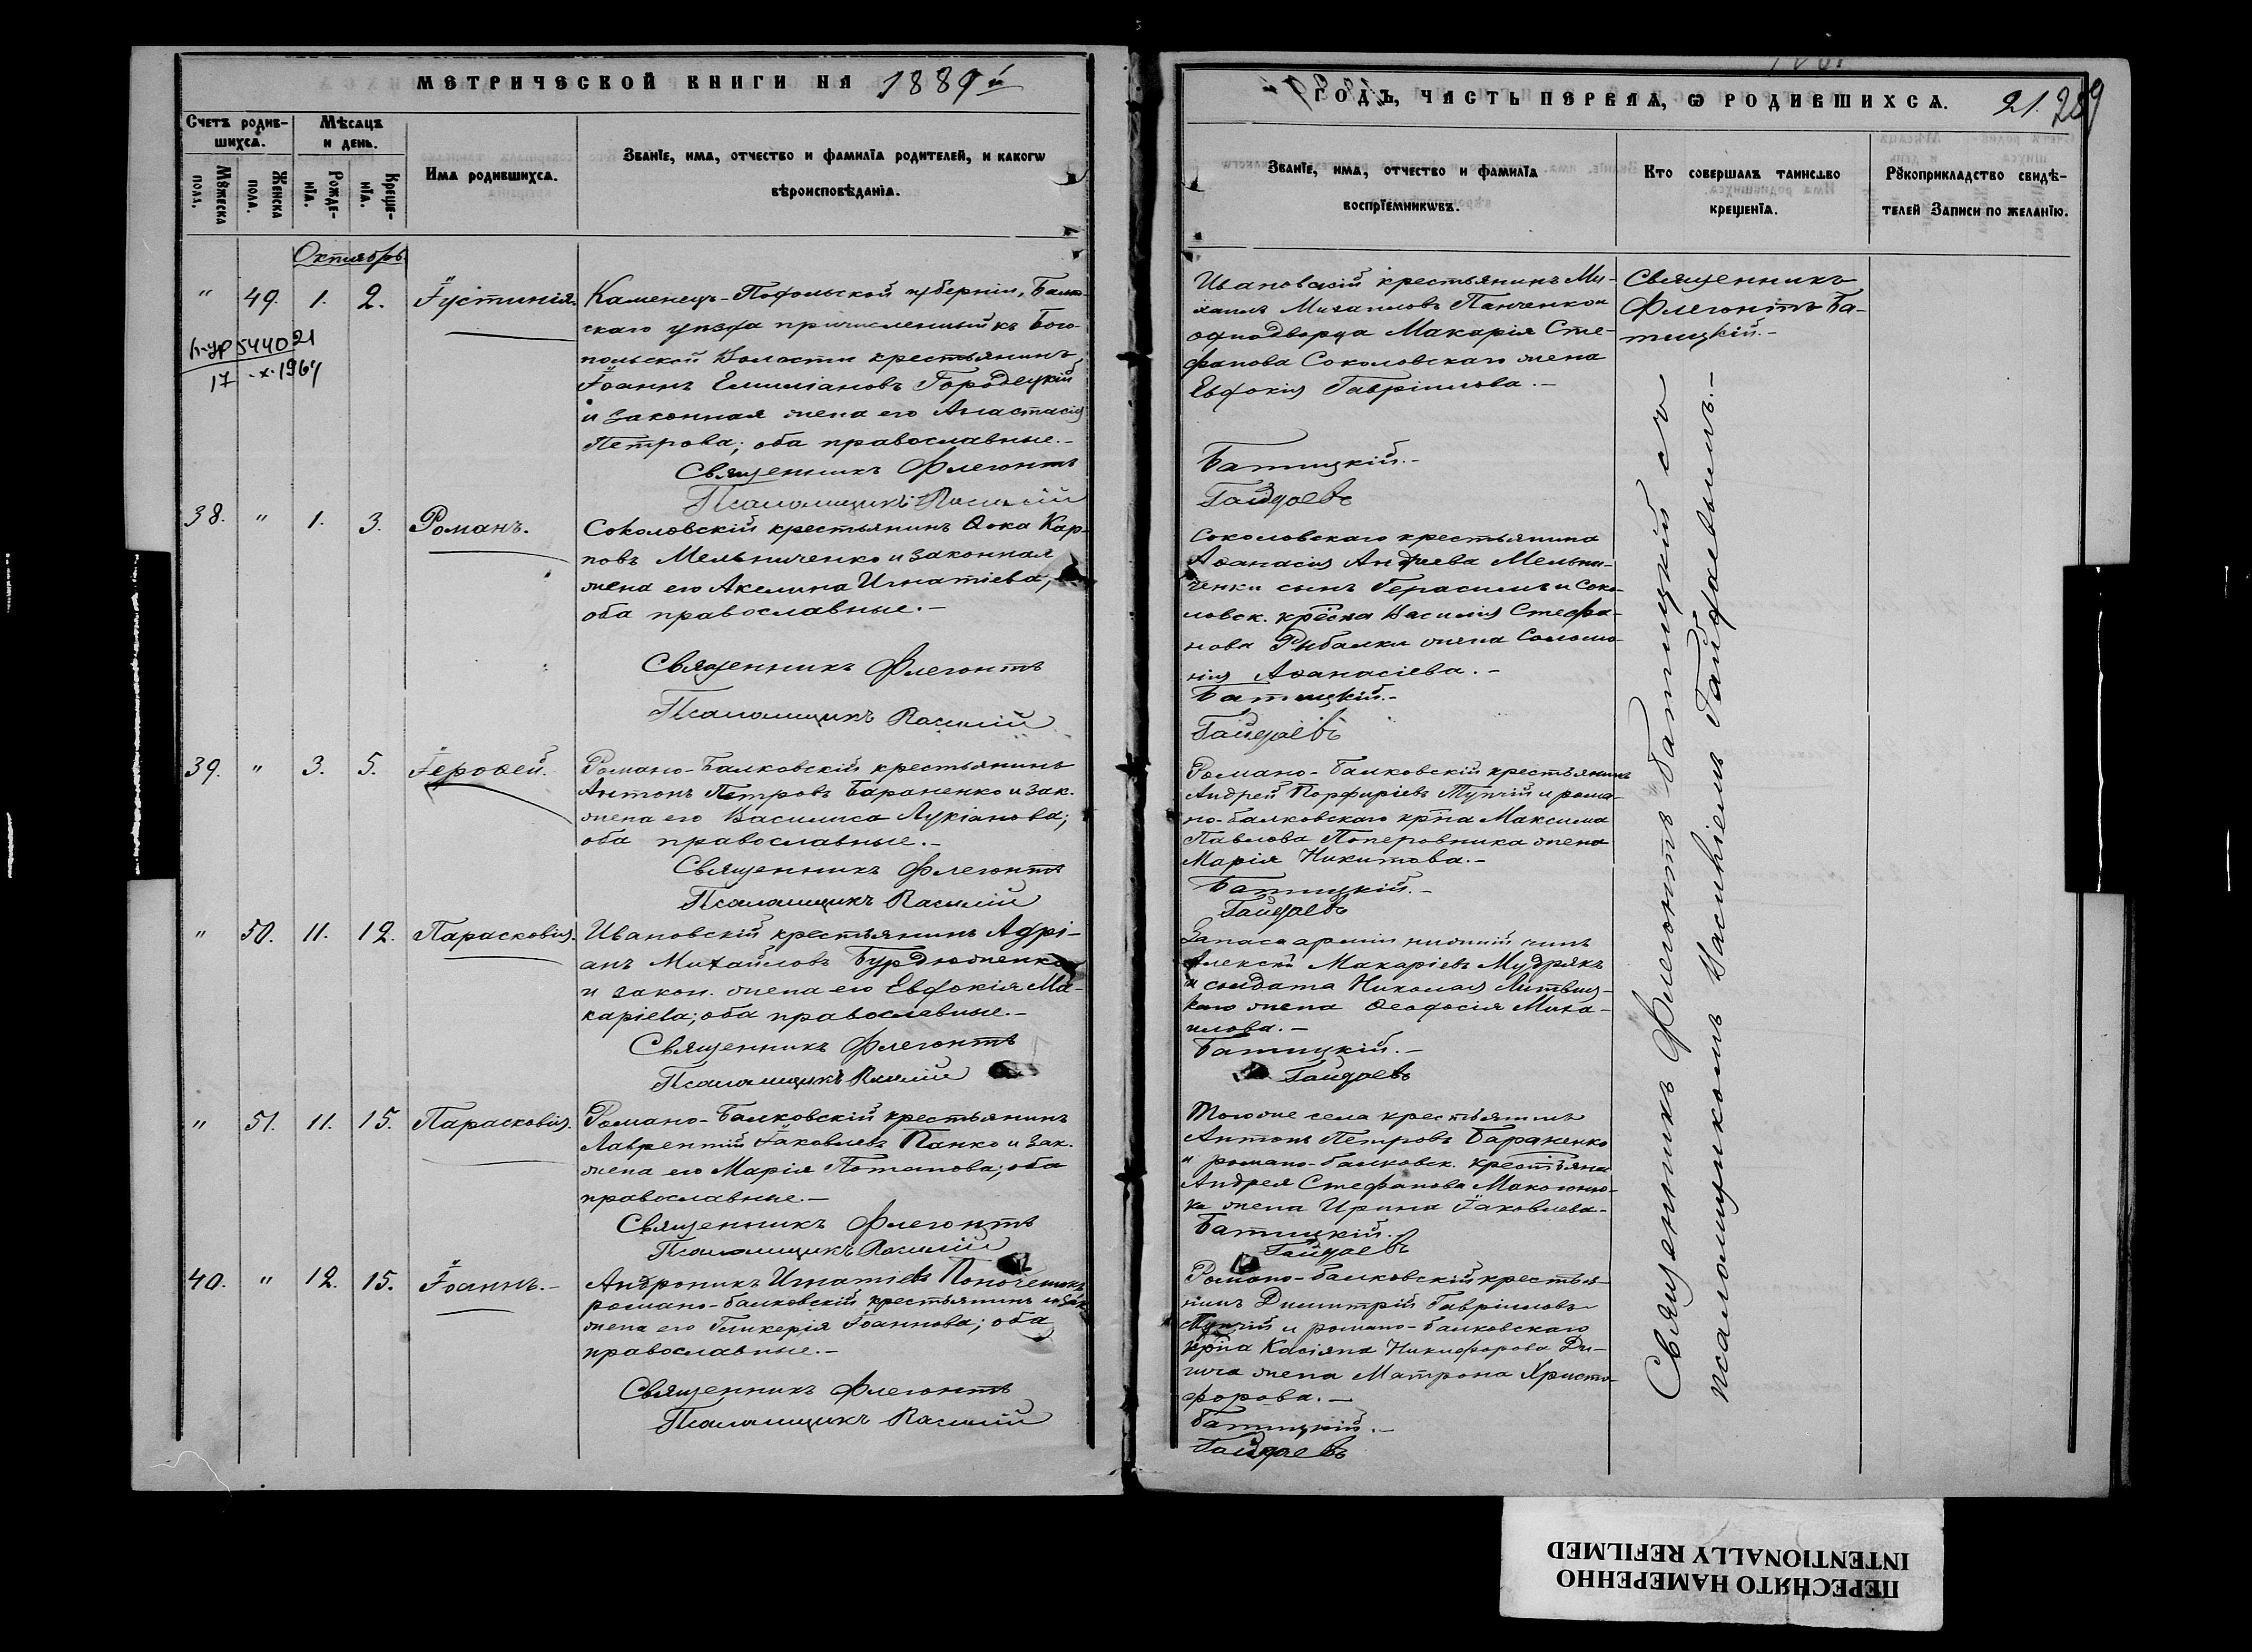 МЕТРИЧЕСКОЙ КНИГИ НА 1889й
Счетъ родив-
шихсѧ.
Мѣсѧцъ
и день.
Мꙋжеска
пола.
Женска
пола.
Рожде-
нїѧ.
Креще-
нїѧ.
Имѧ родившихсѧ.
Званїе, имѧ, отчество и фамилїѧ родителей, и какогѡ
вѣроисповѣданїѧ.
Октябрь
" 49. 1. 2. Іустинія.
Каменецъ-Подольской губерніи, Балт-
скаго уѣзда причисленный къ Бого-
польской Волости крестьянинъ
Іоаннъ Емиліановъ Городецкій
и законная жена его Анастасія
Петрова; оба православные.-
Священникъ Флегонтъ
Псаломщикъ Василій
544021
17 -х-1964
38. " 1. 3. Романъ.
Соколовскій крестьянинъ Ѳока Кар-
повъ Мельниченко и законная
жена его Акелина Игнатіева,
оба православные.-
Священникъ Флегонтъ
Псаломщикъ Василій
39. " 3. 5. Іероѳей.
Романо-Балковскій крестьянинъ
Антонъ Петровъ Бараненко и зак.
жена его Василиса Лукіанова;
оба православные.-
Священникъ Флегонтъ
Псаломщикъ Василій
" 50. 11. 12. Парасковія.
Ивановскій крестьянинъ Адрі-
анъ Михайловъ Бурдюженко
и закон. жена его Евдокія Ма-
каріева; оба православные.-
Священникъ Флегонтъ
Псаломщикъ Василій
" 51. 11. 15. Парасковія.
Романо-Балковскій крестьянинъ
Лаврентій Іаковлевъ Панко и зак.
жена его Марія Потапова; оба
православные.-
Священникъ Флегонтъ
Псаломщикъ Василій
40. " 12. 15. Іоаннъ.-
Андроникъ Игнатіевъ
романо-балковскій крестьянинъ и зак.
жена его Гликерія Іоаннова; оба
православные.-
Священникъ Флегонтъ
Псаломщикъ Василій
ГОДЪ, ЧАСТЬ ПЕРВАѦ, Ѡ РОДИВШИХСѦ. 21. 289
Званїе, имѧ, отчество и фамилїѧ
воспрїемникѡвъ.
Кто совершалъ таинство
крещенїѧ.
Рꙋкоприкладство свидѣ-
телей Записи по желанїю.
Ивановскій крестьянинъ Ми-
хаилъ Михаиловъ Панченко и
однодворца Макарія Сте-
фанова Соколовскаго жена
Евдокія Гавріилова.-
Батицкій.-
Гайдаевъ
Священникъ
Флегонтъ Ба-
тицкій.-
Соколовскаго крестьянина
Аѳанасія Андреева Мельни-
ченки сынъ Герасимъ и Соко-
ловск. кресна Василія Стефа-
нова Рибалки жена Соломо-
нія Аѳанасіева.-
Батицкій.-
Гайдаевъ
Романо-Балковскій крестьянинъ
Андрей Порфиріевъ Тупчій и рома-
но-балковскаго крпна Максима
Павлова Поперовника жена
Марія Никитова.-
Батицкій.-
Гайдаевъ
Запаса арміи нижній чинъ
Алексѣй Макаріевъ Мудрякъ
и солдата Николая Литвиц-
каго жена Ѳеодосія Миха-
илова.-
Батицкій.-
Гайдаевъ
Тогоже села крестьянинъ
Антонъ Петровъ Бараненко
и романо-балковск. крестьяна
Андрея Стефанова Макогоню-
ка жена Ирина Іаковлева-
Батицкій.-
Гайдаевъ
Романо-балковскій крестья-
нинъ Димитрій Гавріиловъ
Тупчій и романо-балковскаго
крпна Касіяна Никифорова Ди-
гича жена Матрона Христо-
форова.-
Батицкій.-
Гайдаевъ
Священникъ Флегонтъ Батицкій съ
псаломщикомъ Василіемъ Гайдаевымъ.-
ПЕРЕСНЯТО НАМЕРЕННО
INTENTIONALLY REFILMED